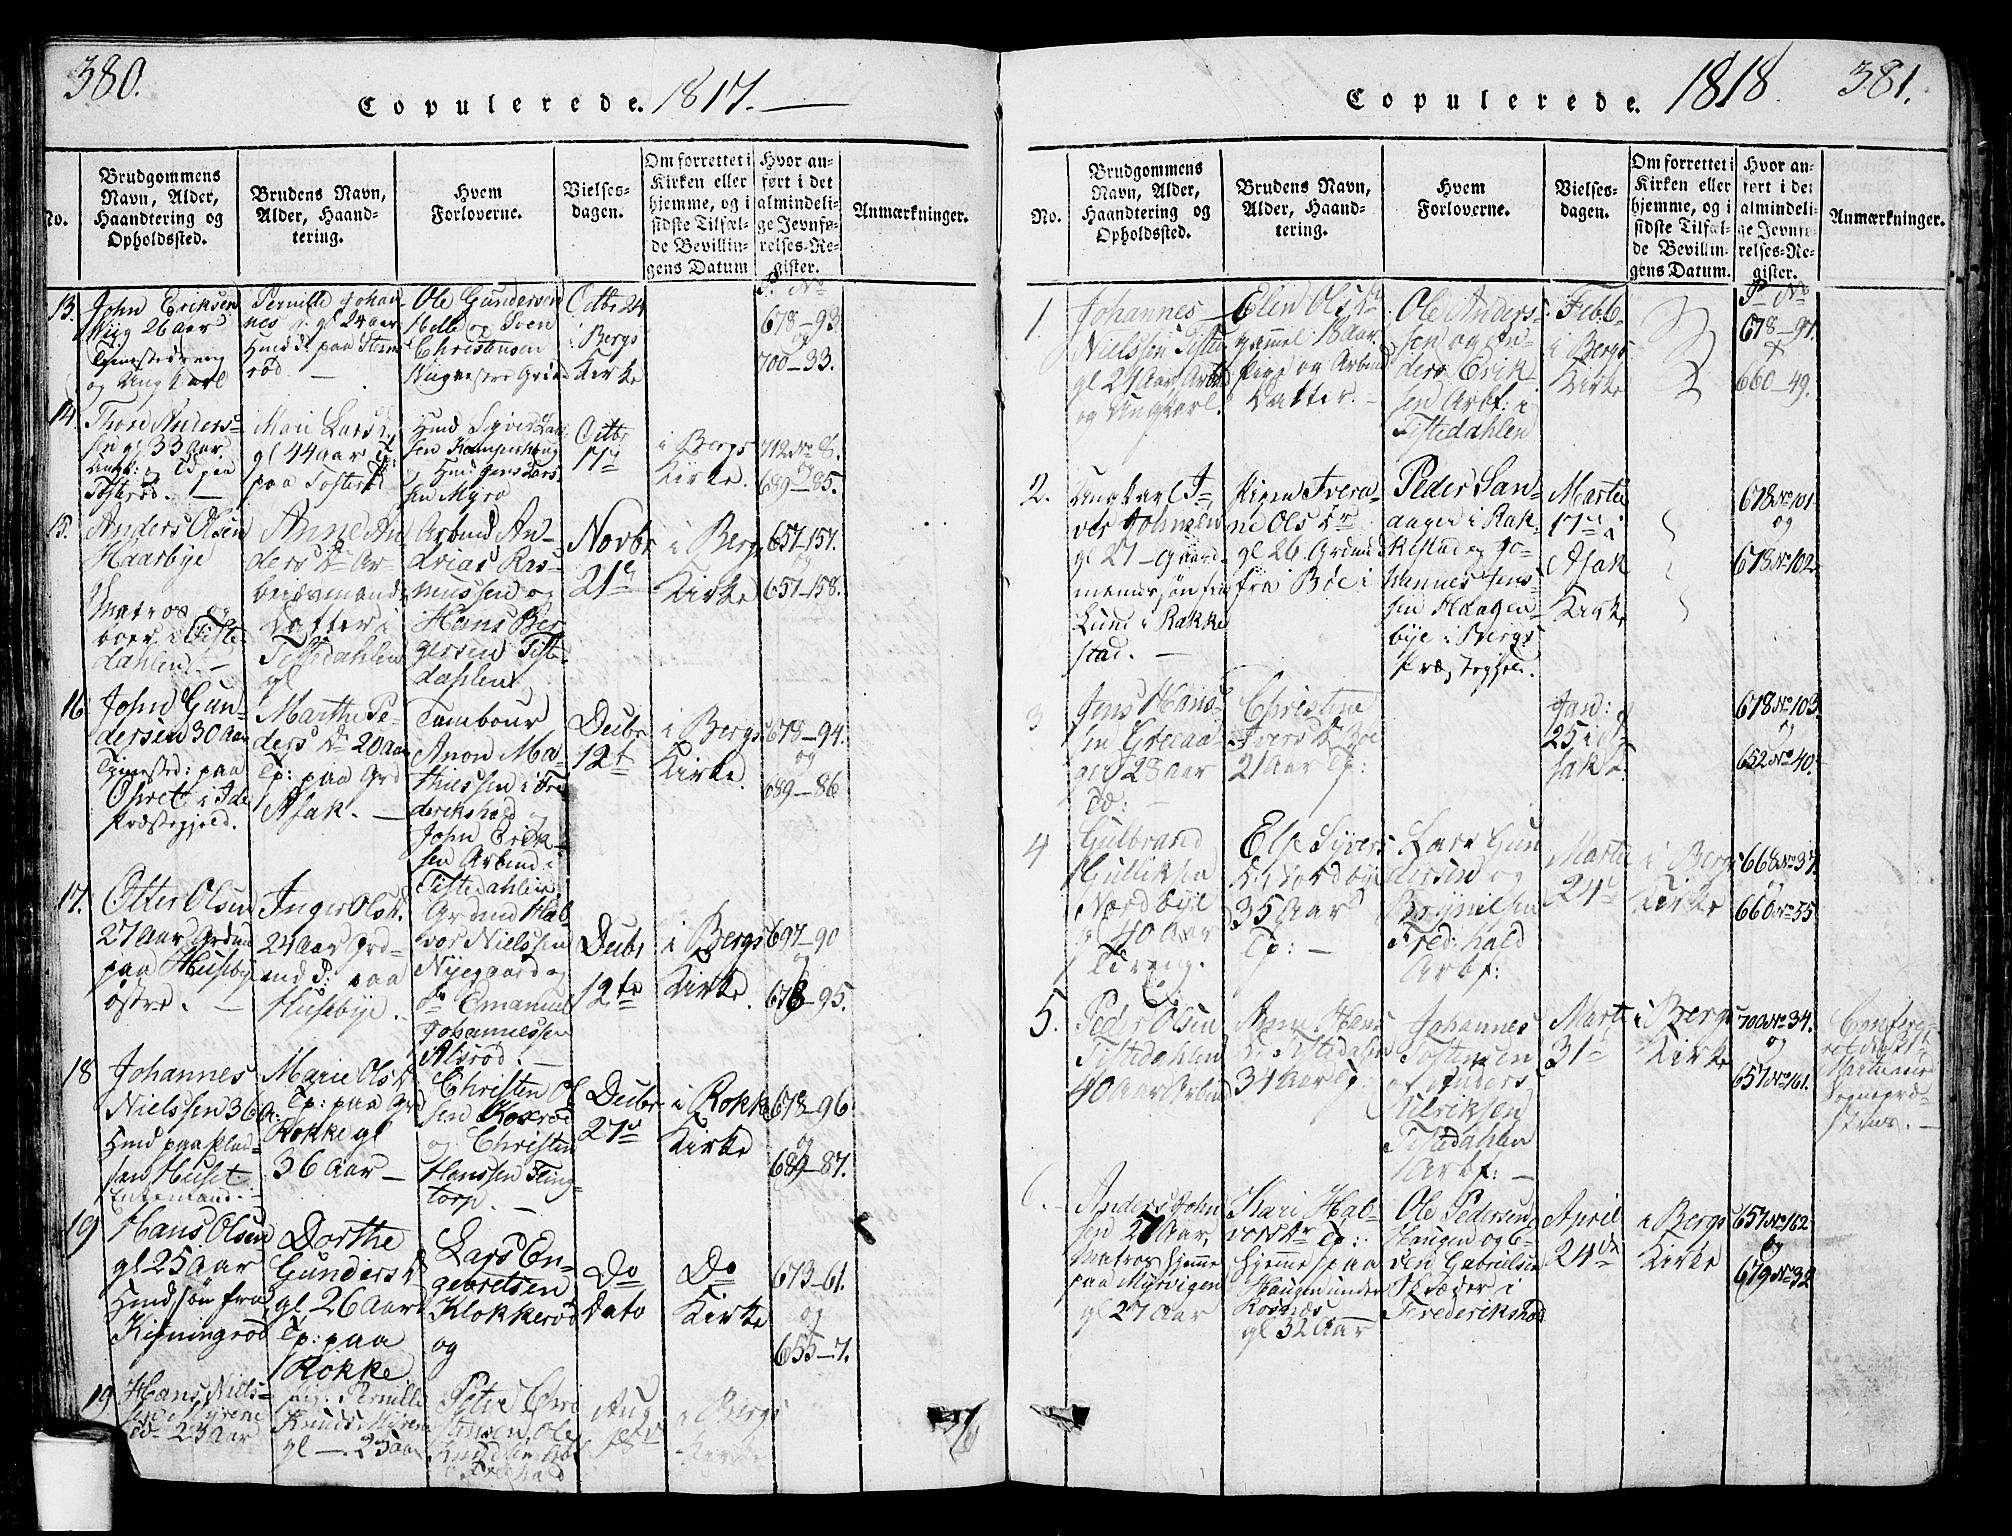 380.
Copulerede. 1817. —
No.
Brudgommens
Navn, Alder,
Haandtering og
Opholdssted.
Brudens Navn,
Alder, Haand-
tering.
Hvem
Forloverne.
Vielses-
dagen.
Om forrettet i
Kirken eller
hjemme, og i
sidste Tilfæl-
de Bevillin-
gens Datum
Hvor an-
ført i det
almindeli-
ge Jevnfø-
relses-Re-
gister.
Anmærkninger.
13.
John Eriksen
Wiig 26 aar
Tjenestedreng
og Ungkarl
Pernille Johan
nes d. gl 24 aar
Hmd d: paa Stom
rød. —
Ole Gundersen
Helle og Sven
Christensen
Octbr 24
i Bergs
Kirke
678—93.
og
700—33.
14.
Thore Anders-
søn gl 33 aar,
Tosterød. —
Mari Lars d.
gl 44 aar Tp:
paa Tosterød
Hmd Syver Lar
sen Kamperhaug
og Hmd Jens Lars
sen Myra
Octbr
17de
i Bergs
Kirke.
712 No 8.
og
689—85.
15.
Anders Olsen
Haarbye
Matros og
boer i Tiste
dahlen. —
Anne An
ders Dr Ar-
beidsmands
Datter i
Tistedahlen
gl
Arbmd An-
drias Ras-
mussen og
Hans Ber
gersen Tiste
dahlen
Novbr
21de
i Bergs
Kirke
657—157.
og
657—158.
16
John Gun-
dersen 30 Aar
Tjenested: paa
Opret i Ide
Præstegjeld.
Marthe Pe-
ders Dr 20 Aar
Tp: paa Grd
Asak. —
Tambour
Anon Ma-
thiessen i Fre
derikshald og
John Erik-
sen Arbmd i
Tistedahlen
Decbr
12te
i Bergs
Kirke.
678—94.
og
689—86
17.
Otter Olsen
27 Aar Grdmd
paa Husebye
østre. —
Inger Ols D.
24 Aar Grd-
md d: paa
Husebye.
Grdmd Hal-
vor Nielssen
Nyegaard og
do Emanuel
Johannessen
Alsrød. —
Decbr
12te
i Bergs
Kirke.
697—90
og
678—95.
18
Johannes
Nielssen 36 A:
Hmd paa Plad-
sen Huset
Enkemand. —
Marie Ols D
Tp: paa Grd
Rokke gl
36 Aar —
Christen Ol
sen Koxrød
og Christen
Hanssen Fling
torp. —
Decbr
27de
i Rokke
Kirke
678—96
og
689—87.
19
Hans Olsen
gl 25 Aar
Hmd søn fra
Kisningrød
Dorthe
Gunders D
gl 26 Aar
Tp: paa
Rokke.
Lars En-
gebretsen
Klokkerød
og
Do
Dato
Do
Kirke
673—61.
og
655—7.
19
Hans Niels-
sen Myrene
23 Aar
Pernille
Knuds Myrene
gl —. 23 Aar
Peter Chri
stensen Ole
Aug
i Bergs
Kirke
1818. 381.
Copulerede.
No.
Brudgommens
Navn, Alder,
Haandtering og
Opholdssted.
Brudens Navn,
Alder, Haand-
tering.
Hvem
Forloverne.
Vielses-
dagen.
Om forrettet i
Kirken eller
hjemme, og i
sidste Tilfæl-
de Bevillin-
gens Datum.
Hvor an-
ført i det
almindeli-
ge Jevnfø-
relses-Re-
gister.
Anmærkninger.
1.
Johannes
Nielssen Tiste
gl 24 Aar Arbmd
og Ungkarl.
Elen Ols Dr
gammel 18 aar.
Pige og Arbmd
Datter. —
Ole Anders-
sen og An-
ders Erik-
sen Arbf: i
Tistedahlen
Febb-
i Bergs
Kirke
678—97.
660—49.
2.
Ungkarl I-
ver Johnsen
gl 27— gaard-
mands søn fra
Lund i Rakke
stad. —
Pigen Svera-
ne Ols Dr
gl 26 Grdmd
fra Böe i
Peder San-
aager i Rak-
kestad og Jo-
hannes Jens-
sen Haagen-
bye i Bergs
Præstegjeld.
Martii
17de i
Asak
Kirke
678 No 101
og
678 No 102.
3
Jens Hans-
en Greaa-
gl 28 Aar
Christine
Ivers D Böe
21 Aar Tp:
Jan:
25 i A-
sak K.
678 No 103.
og
652 No 40.
4
Gulbrand
Gulliksen
Nordbye
gl 40 Aar
Tdreng.
Else Syvers
D. Nordbye
35 Aar
Tp: —
Lars Gun
dersen og
Brynnilsen
Fred: hald
Arbf:
Martii
24de
i Bergs
Kirke
668 No 37.
og
660 No 55.
5.
Peder Olsen
Tistedahlen
40 Aar Arbmd
Anne Hans
D. Tistedalen
34 Aar Tp:
Johannes
Tostensen
og Anders
Ulriksen
Tistedahlen
Arbf: —
Marti
31te
i Bergs
Kirke
700 No 34.
og
657 No 161.
6.
Anders John
sen 27 Aar,
Matros hjemme
paa Myrvigen
gl 27 Aar
Kari Hal-
vors Dr Tp:
hjemme paa
Haugen under
Rosnæs
gl 32 Aar
Ole Pedersen
Haugen og E-
ven Gabrielsen
Skræder i
Frederikshald
April
24de
i Bergs
Kirke
657 No 162
og
679 No 32